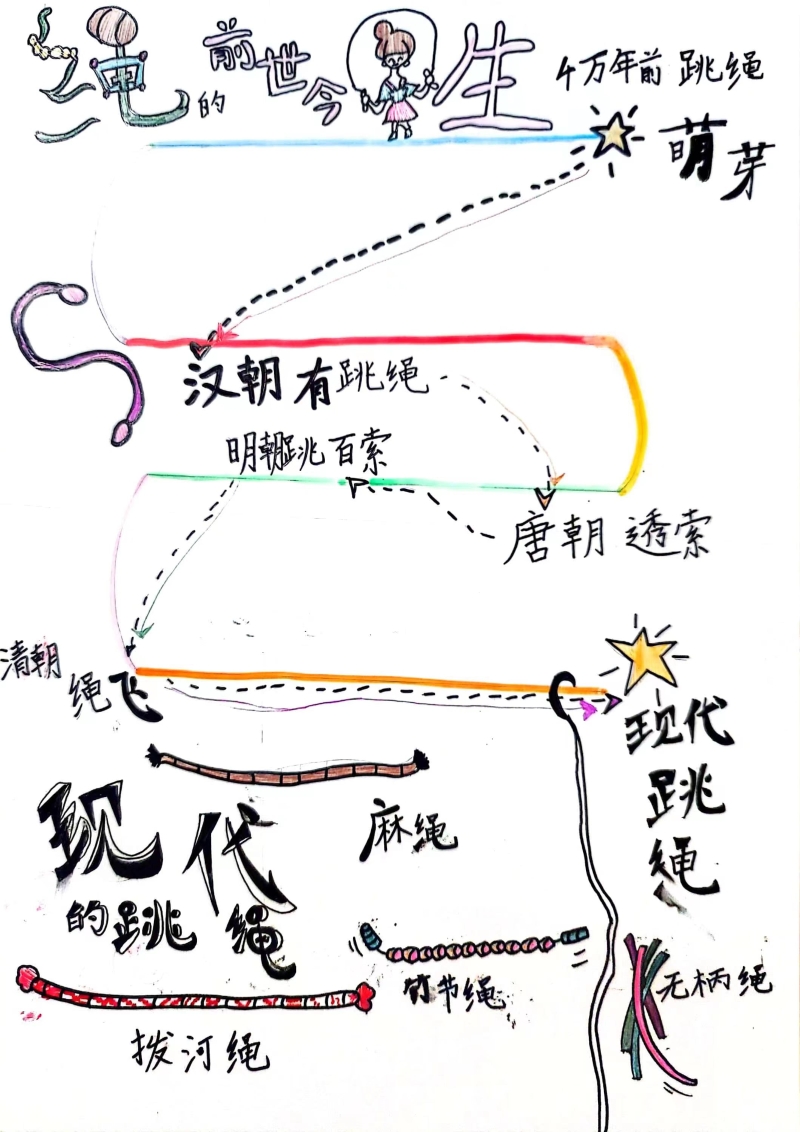 绳的前世今生
4万年前 跳绳
萌芽
汉朝有跳绳
明朝跳百索
唐朝 透索
清朝
绳飞
现代
跳
绳
现代
的跳绳
麻绳
竹节绳
无柄绳
拨河绳